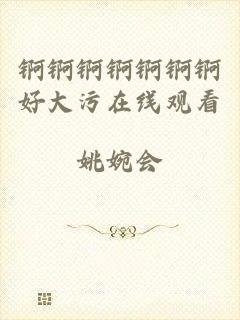 锕锕锕锕锕锕锕
好大污在线观看
姚婉会